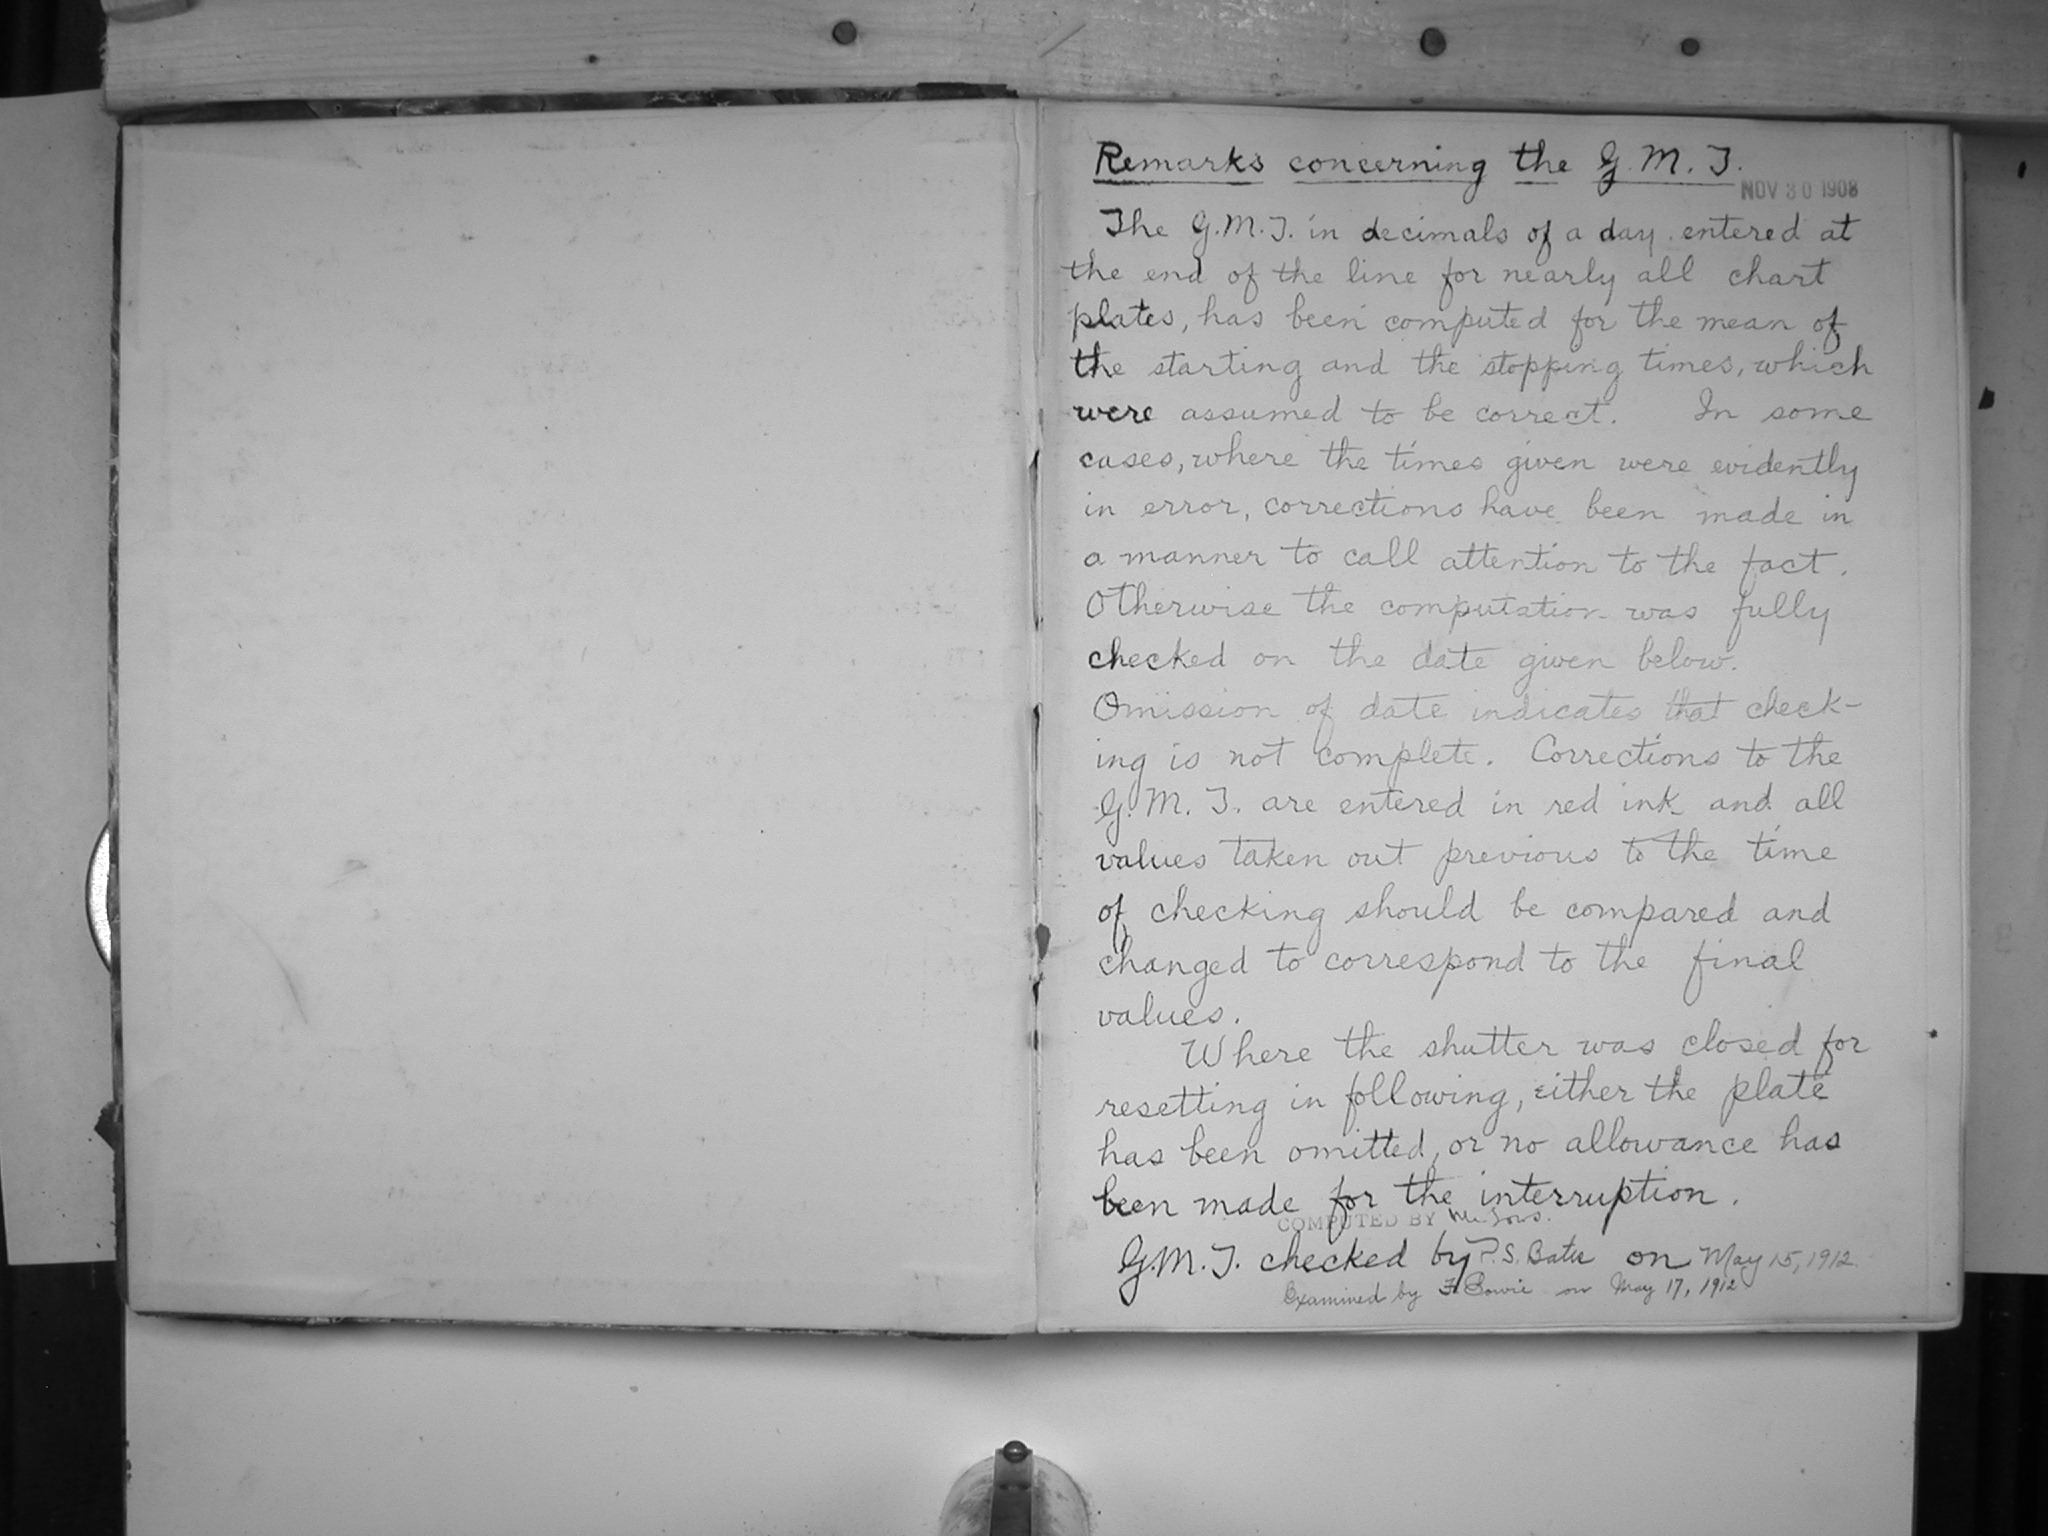 Remarks concerning the G. M. T.
NOV 30 1908
The G.M.T. in decimals of a day entered at
the end of the line for nearly all chart
plates, has been computed for the mean of
the starting and the stopping times, which
were assumed to be correct. In some
cases, where the times given were evidently
in error, corrections have been made in
a manner to call attention to the fact.
Otherwise the computation was fully
checked on the date given below.
Omission of date indicates that check-
ing is not complete. Corrections to the
G. M. T. are entered in red ink and all
values taken out previous to the time
of checking should be compared and
changed to correspond to the final
values.
Where the shutter was closed for
resetting in following, either the plate
has been omitted, or no allowance has
been made for the interruption.
COMPUTED BY
G.M.T. checked by P.S. Bates on May 15, 1912.
Examined by F. Bowie on May 17, 1912